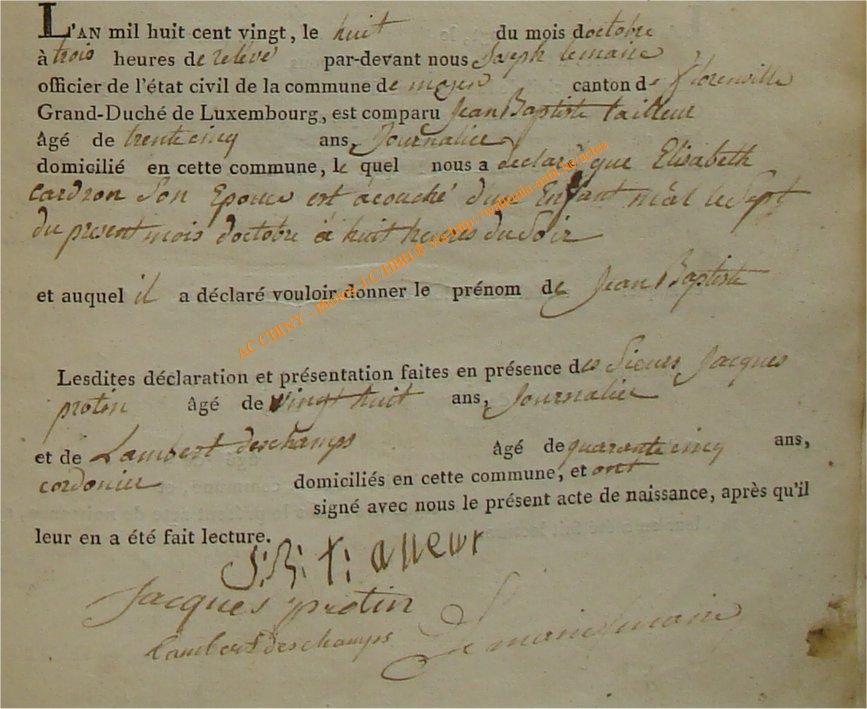 L'AN mil huit cent vingt, le huit du mois doctobre
à trois heures de relevé par-devant nous Joseph lemaire
officier de l'état civil de la commune de moyen canton de florenville
Grand-Duché de Luxembourg, est comparu Jean Baptiste tailleur
âgé de trente cinq ans, Journalier
domicilié en cette commune, le quel nous a déclaré que Elisabeth
Cardron Son Epouse est acouché dun Enfant mâl le Sept
du present mois doctobre à huit heures du Soir
et auquel il a déclaré vouloir donner le prénom de Jean Baptiste
Lesdites déclaration et présentation faites en présence des Sieurs Jacques
protin âgé de vingt huit ans, Journalier
et de Lambert deschamps âgé de quarante cinq ans,
cordonier domiciliés en cette commune, et ont
signé avec nous le présent acte de naissance, après qu'il
leur en a été fait lecture.
J: B: t: alleur
Jacques protin
Lambert deschamps
AC CHINY - Photos J.C.